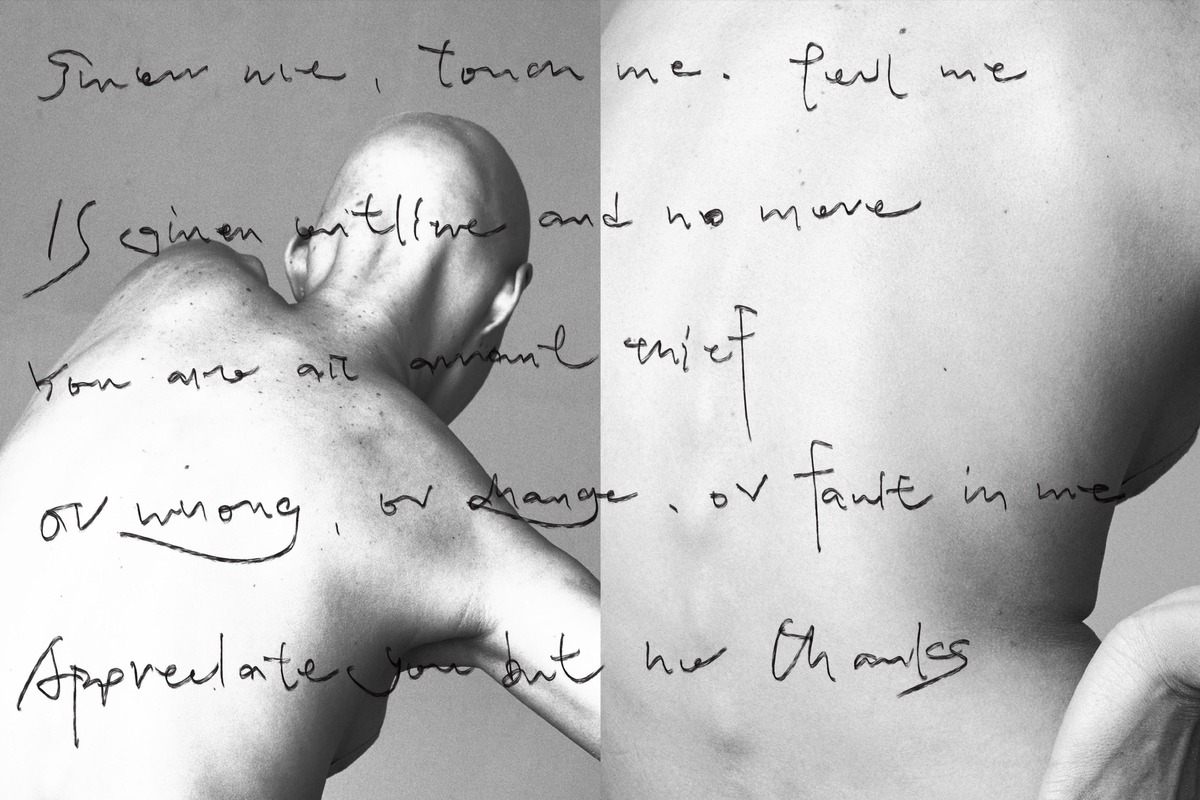 me, touch me. feel me
Is given and no more
You are an thief
or wrong, or change, or fault in me
Appreciate you but no thanks